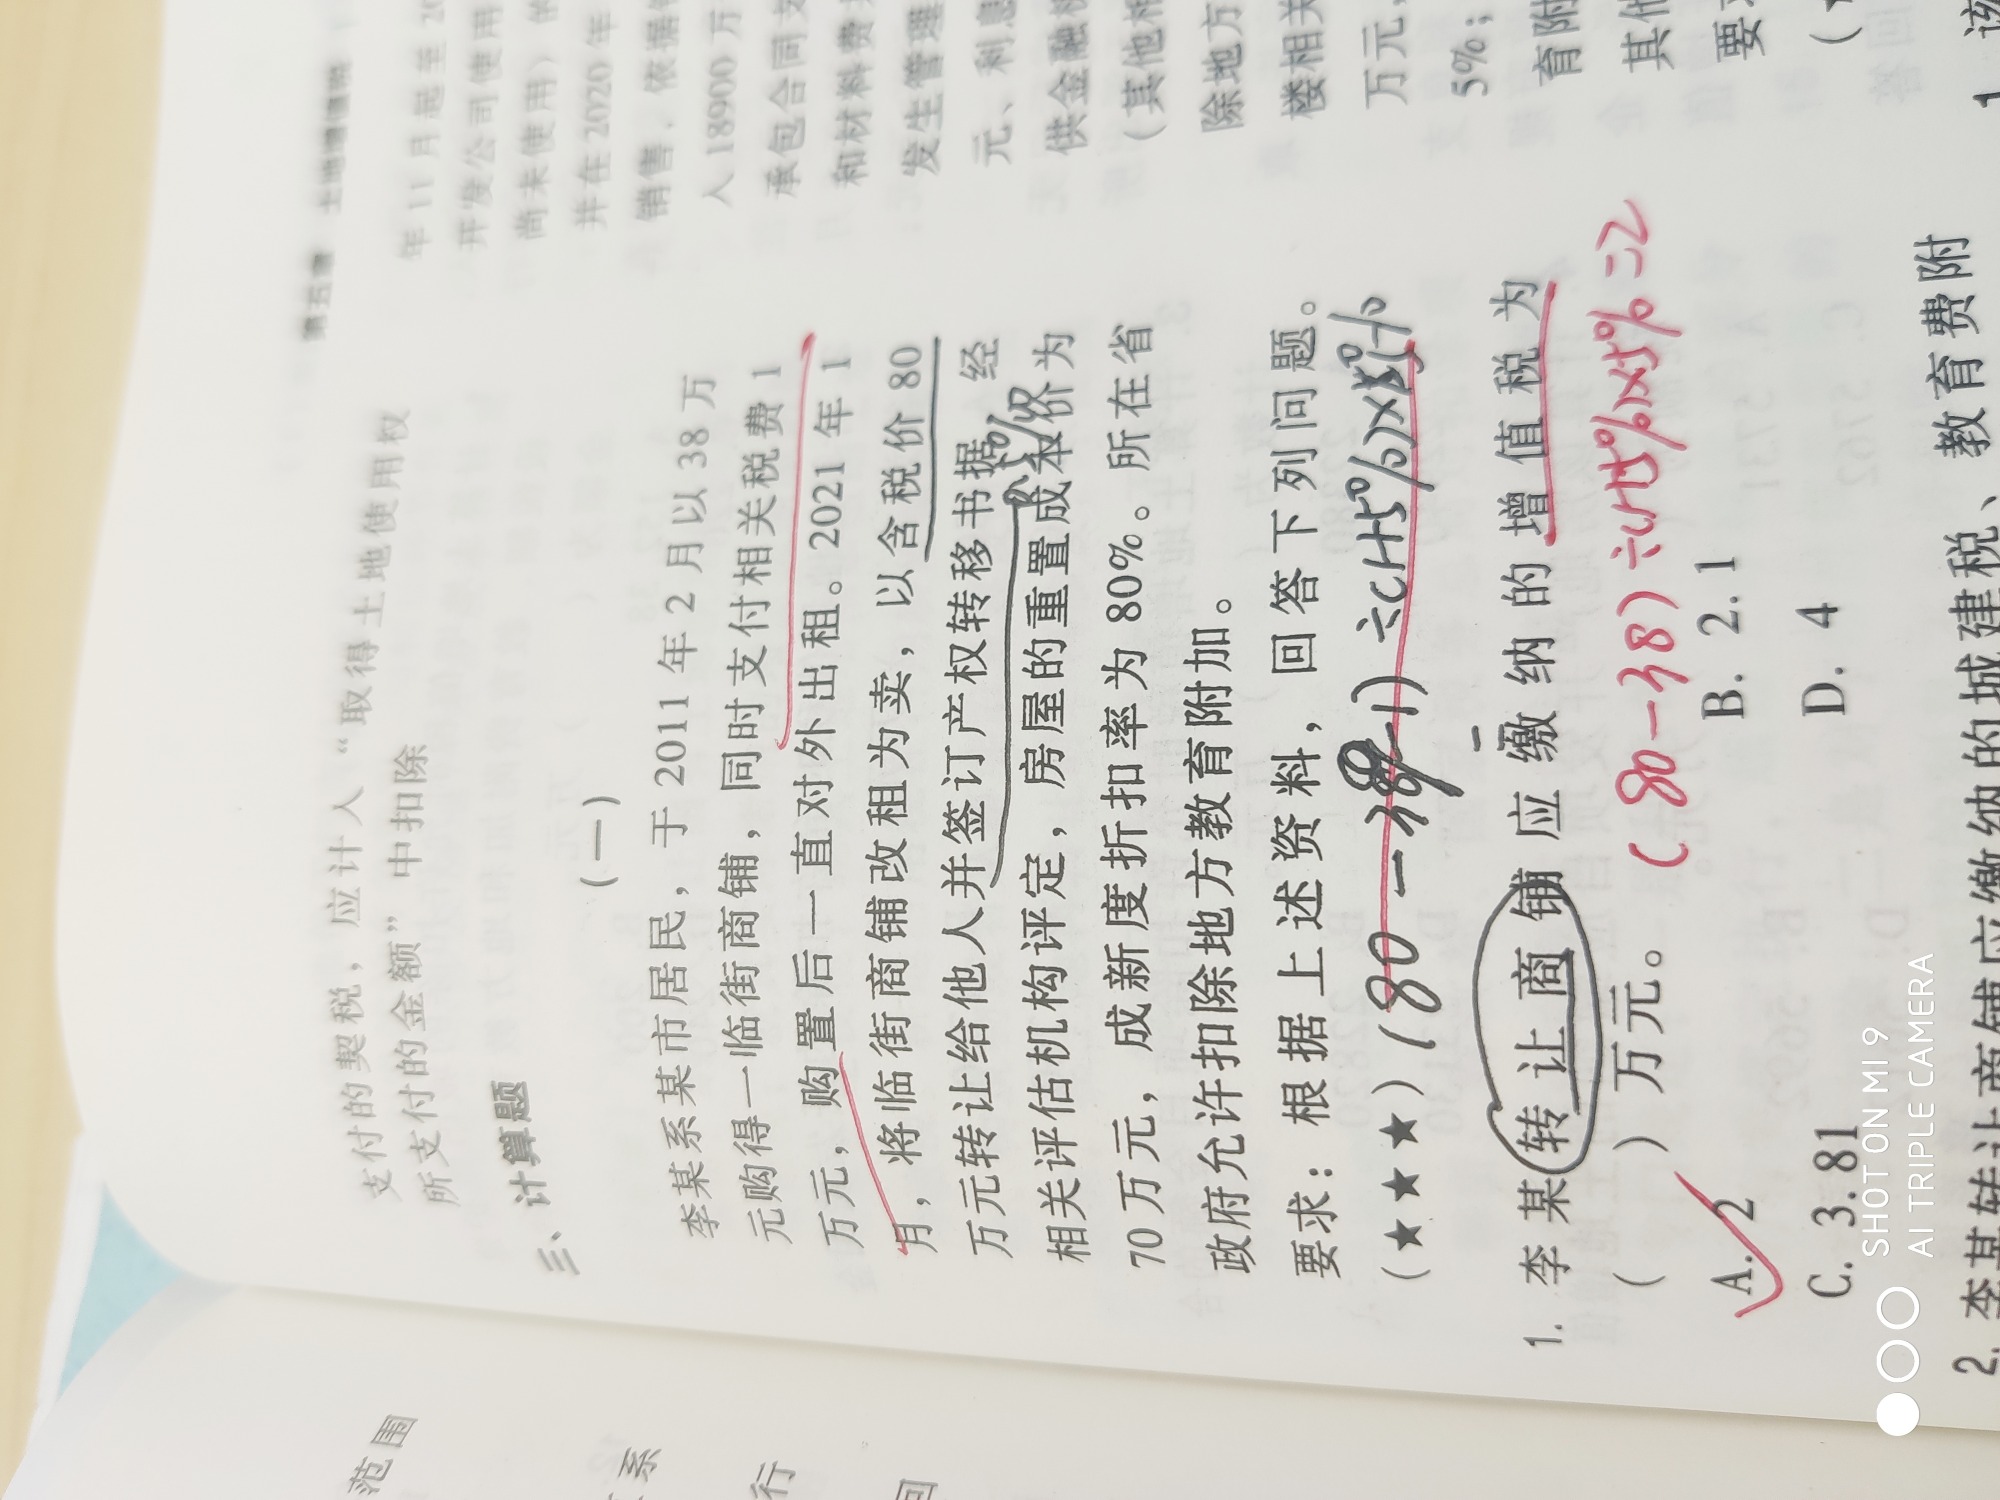 支付的契税，应计入“取得土地使用权
所支付的金额”中扣除
三、计算题
（一）
李某系某市居民，于 2011 年 2 月以 38 万
元购得一临街商铺，同时支付相关税费 1
万元，购置后一直对外出租。2021 年 1
月，将临街商铺改租为卖，以含税价 80
万元转让给他人并签订产权转移书据，经
相关评估机构评定，房屋的重置成本价为
70 万元，成新度折扣率为 80%。所在省
政府允许扣除地方教育附加。
要求：根据上述资料，回答下列问题。
（★★★）
1. 李某转让商铺应缴纳的增值税为
（ ）万元。
(80-38)÷(1+5%)×5%=2
A. 2
B. 2. 1
C. 3. 81
D. 4
2. 李某转让商铺应缴纳的城建税、教育费附
年 11 月起至 20
开发公司使用
尚未使用）的
并在 2020 年
销售，依据
入 18900 万
承包合同
和材料费
发生管理
元、利息
供金融
（其他相
除地方
楼相关
万元，
5%；
育附
其他
要
范围
系
行
回
SHOT ON MI 9
AI TRIPLE CAMERA